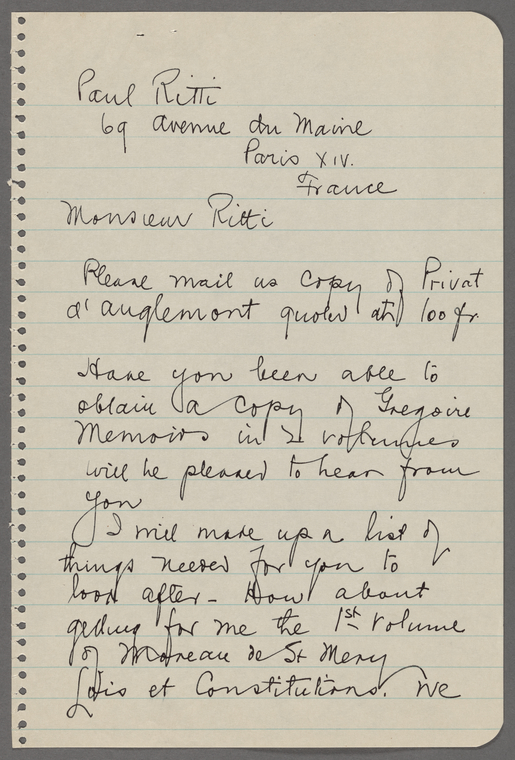 Paul Ritti
69 Avenue du Maine
Paris XIV.
France
Monsieur Ritti
Please mail us copy of Privat
d'Anglemont quoted at 100 fr
Have you been able to
obtain a copy of Gregoire
Memoirs in 2 volumes
will be pleased to hear from
you
I will make up a list of
things needed for you to
look after - How about
getting for me the 1st volume
of Moreau de St Mery
Lois et Constitutions. We